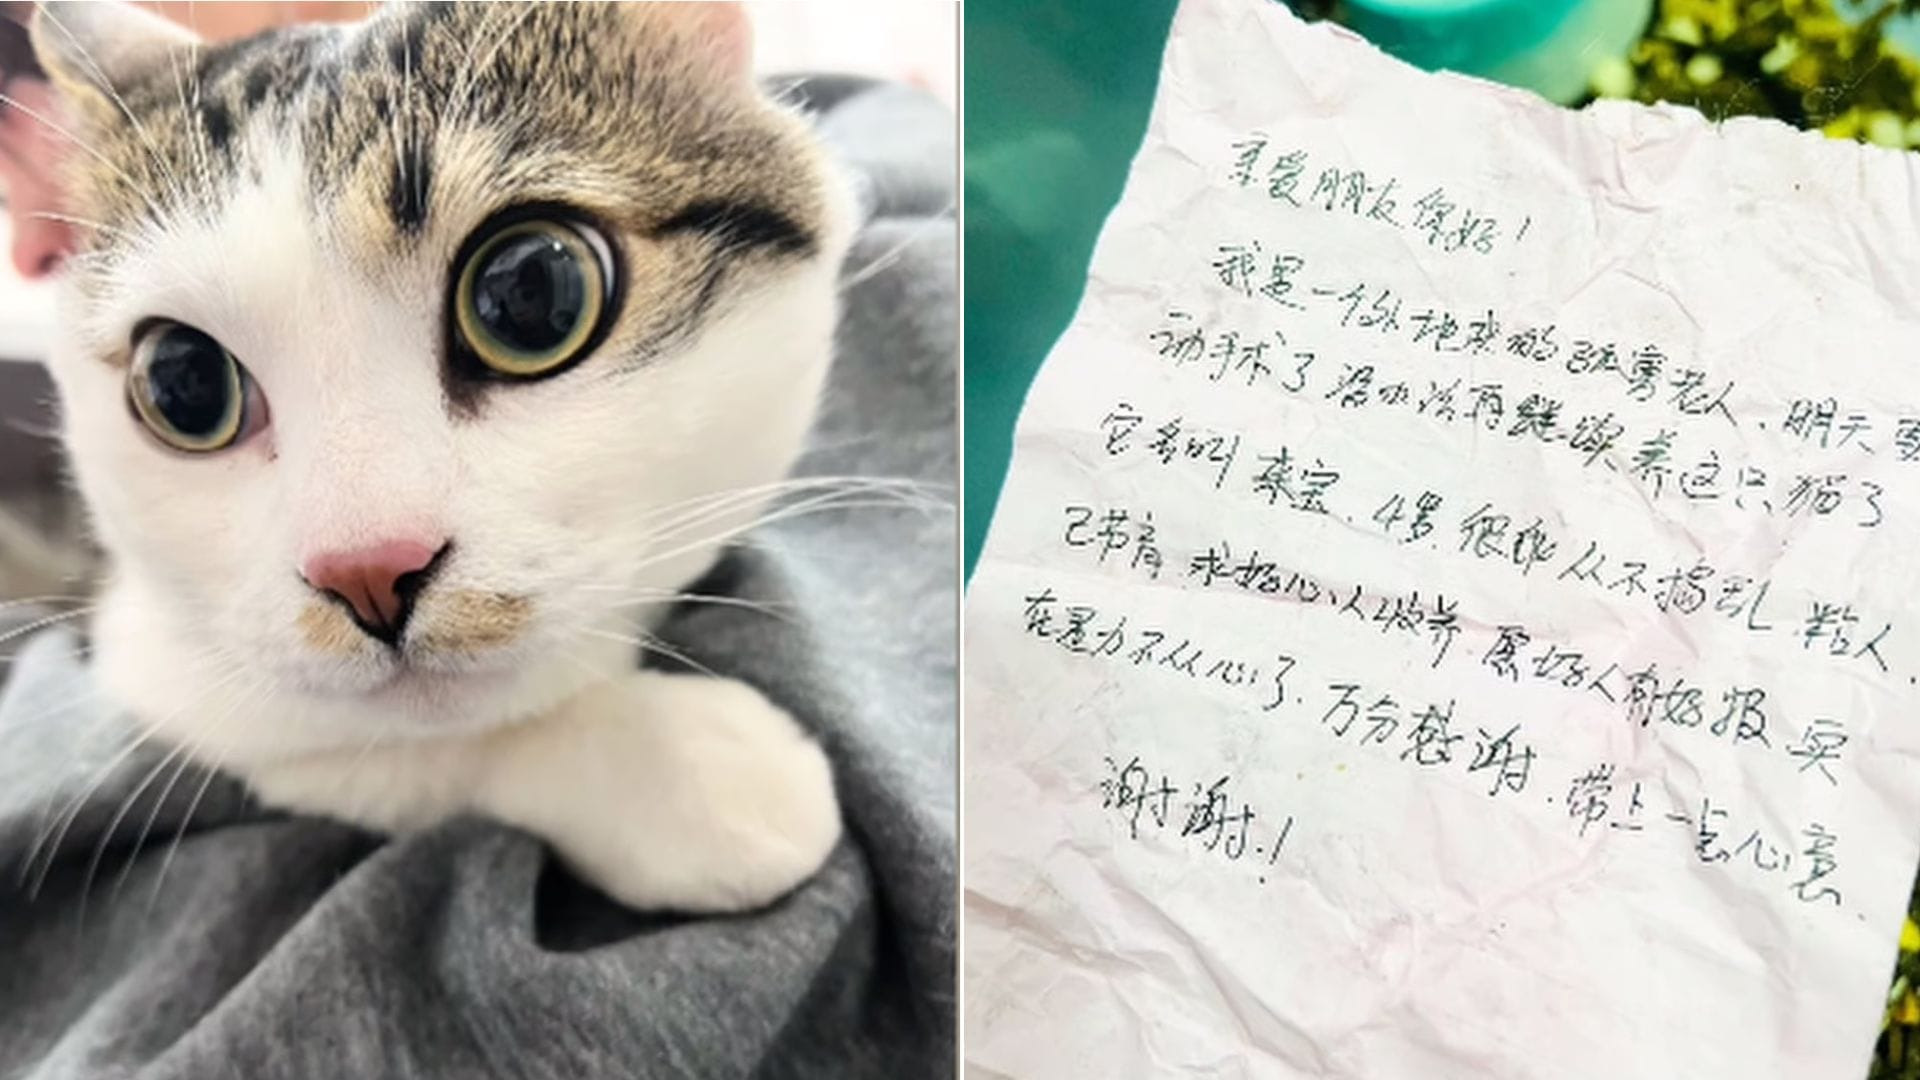 亲爱朋友你好！
我是一个外地来的孤寡老人.明天要
动手术了没办法再继续养这只猫了
它名叫来宝.4岁.很乖从不捣乱.粘人.
已节育.求好心人收养.愿好人有好报 实
在是力不从心了.万分感谢.带上一点心意.
谢谢！